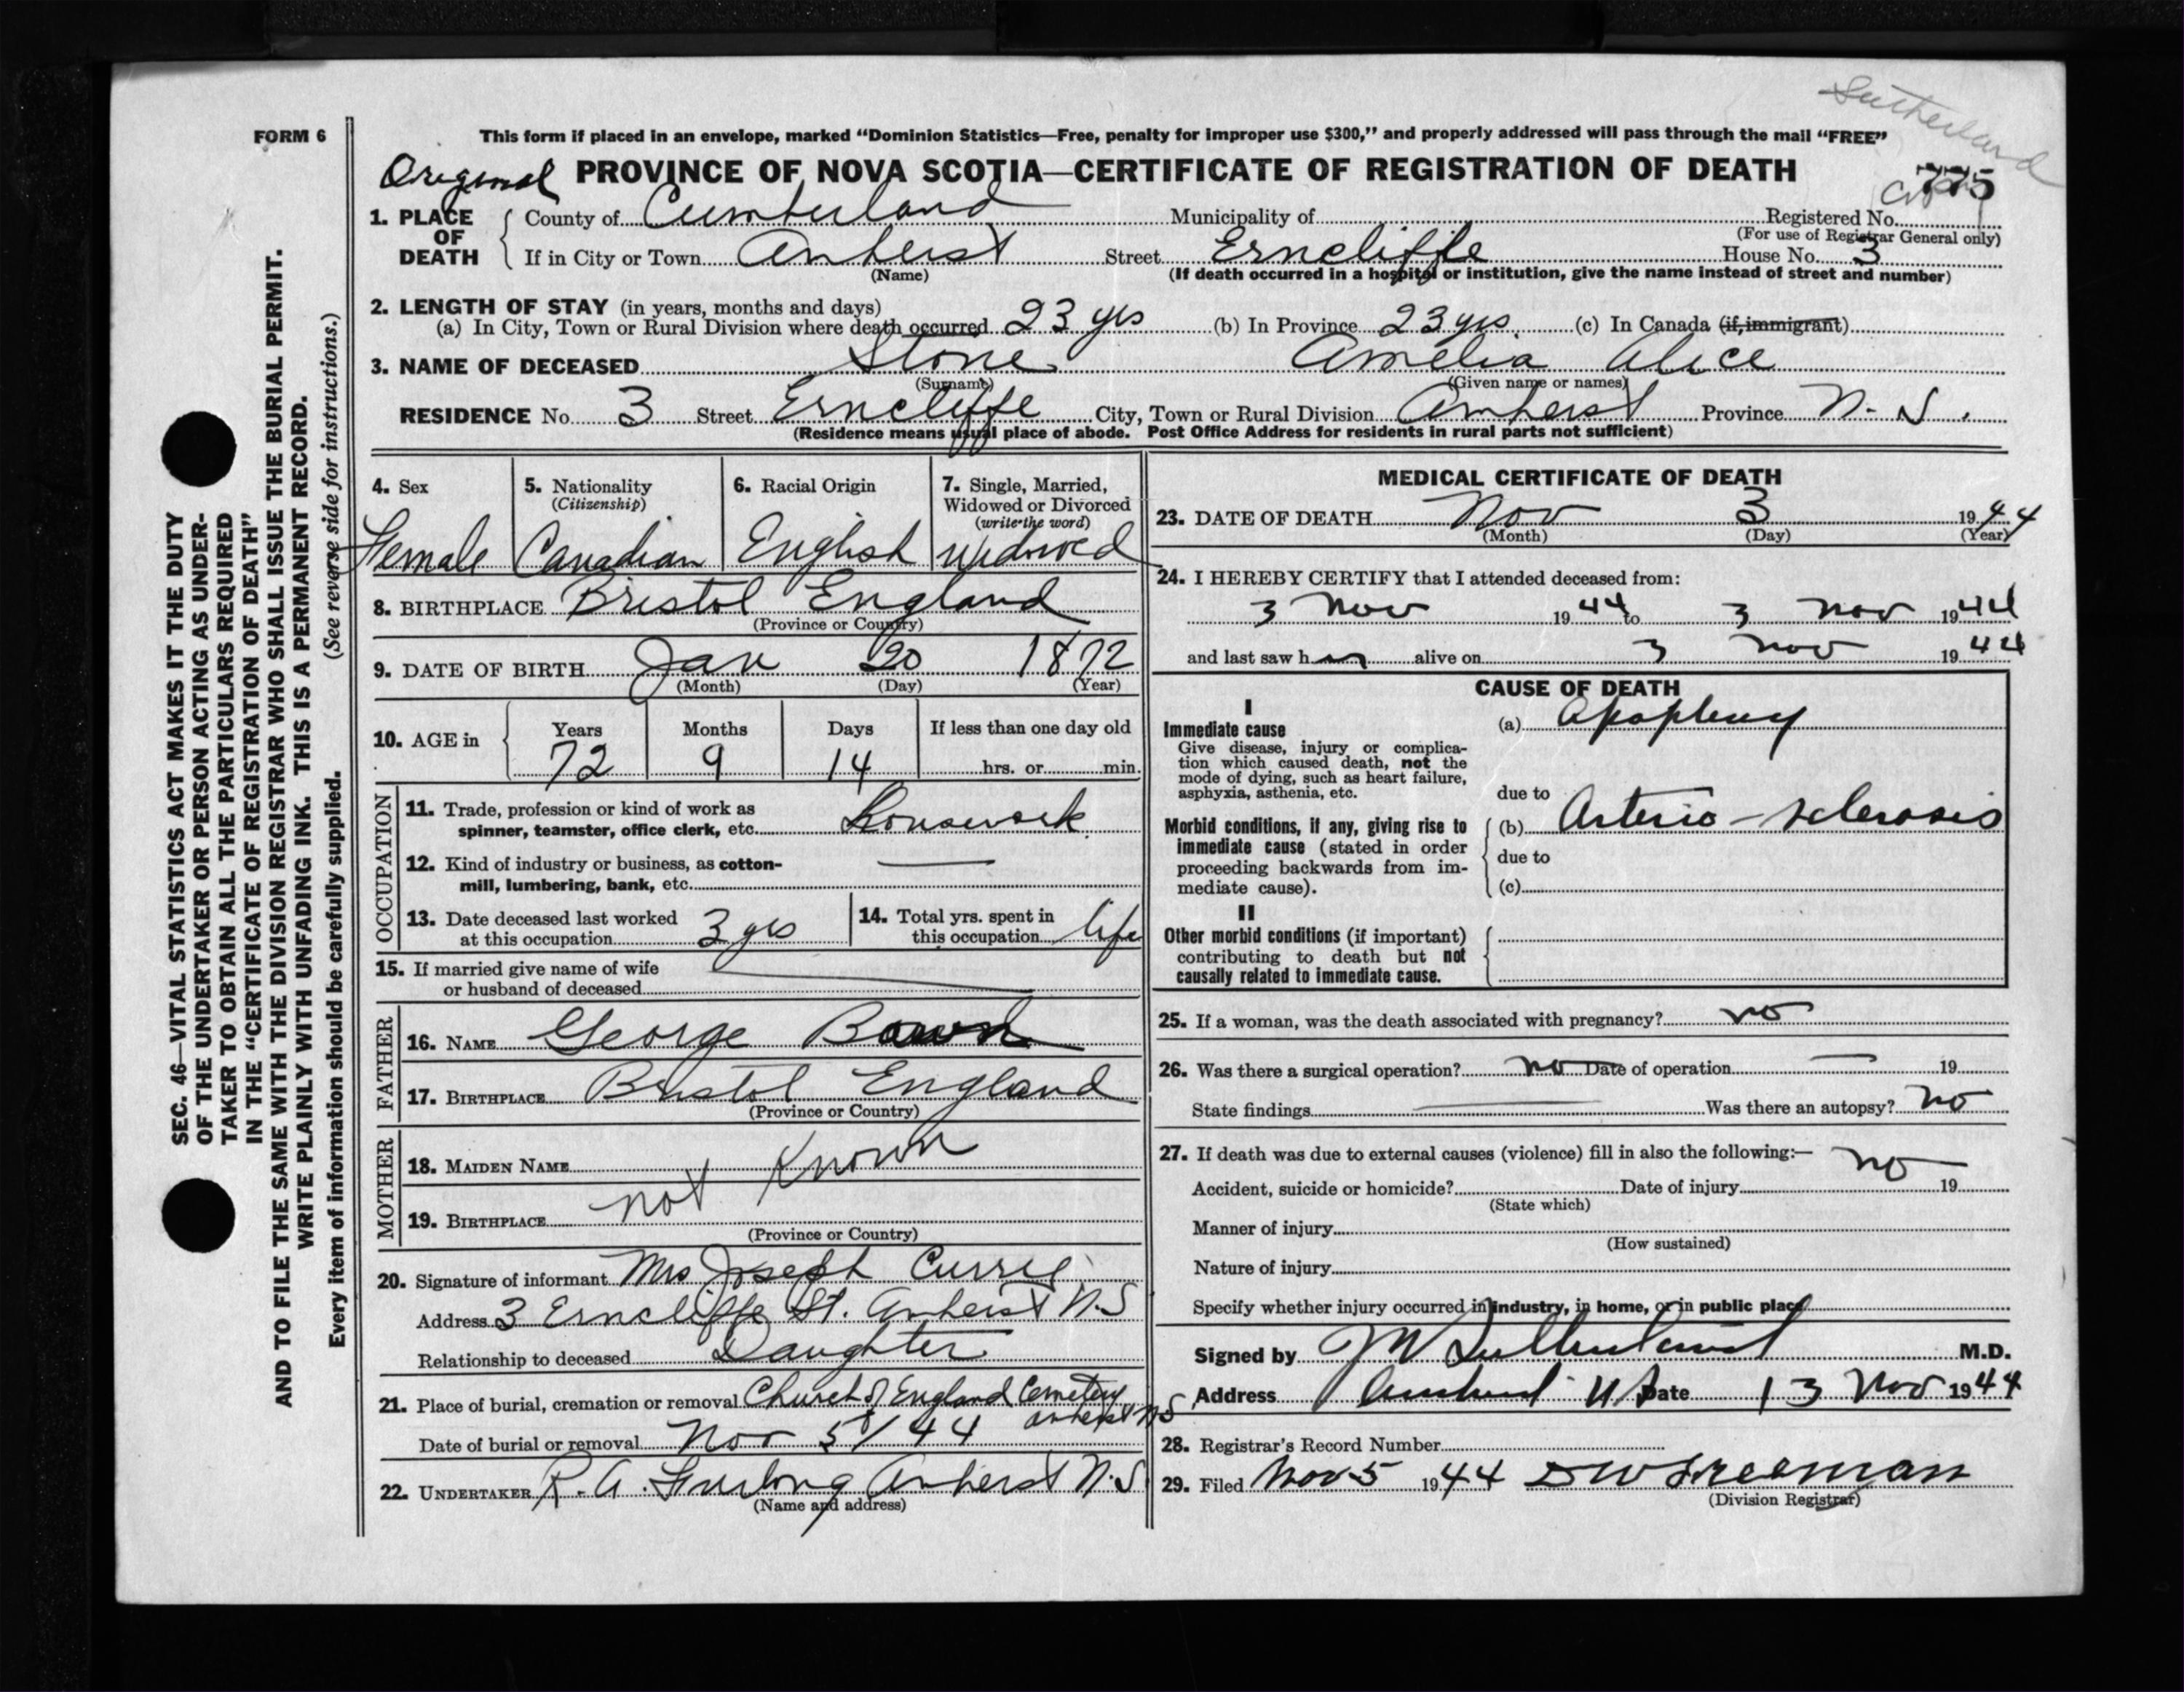 Sutherland
FORM 6
This form if placed in an envelope, marked “Dominion Statistics—Free, penalty for improper use $300,” and properly addressed will pass through the mail “FREE”
Original PROVINCE OF NOVA SCOTIA—CERTIFICATE OF REGISTRATION OF DEATH
775
1. PLACE OF DEATH
County of Cumberland Municipality of Registered No.
(For use of Registrar General only)
If in City or Town Amherst Street Erncliffe House No. 3
(Name) (If death occurred in a hospital or institution, give the name instead of street and number)
2. LENGTH OF STAY (in years, months and days)
(a) In City, Town or Rural Division where death occurred 23 yrs (b) In Province 23 yrs. (c) In Canada (if immigrant)
3. NAME OF DECEASED Stone Amelia Alice
(Surname) (Given name or names)
RESIDENCE No. 3 Street Erncliffe City, Town or Rural Division Amherst Province N. S.
(Residence means usual place of abode. Post Office Address for residents in rural parts not sufficient)
4. Sex
Female
5. Nationality
(Citizenship)
Canadian
6. Racial Origin
English
7. Single, Married,
Widowed or Divorced
(write the word)
Widowed
8. BIRTHPLACE Bristol England
(Province or Country)
9. DATE OF BIRTH Jan 20 1872
(Month) (Day) (Year)
10. AGE in
Years Months Days If less than one day old
72 9 14 hrs. or min.
OCCUPATION
11. Trade, profession or kind of work as
spinner, teamster, office clerk, etc. Housework
12. Kind of industry or business, as cotton-
mill, lumbering, bank, etc. —
13. Date deceased last worked
at this occupation 3 yrs
14. Total yrs. spent in
this occupation life
15. If married give name of wife
or husband of deceased
FATHER
16. NAME George
17. BIRTHPLACE Bristol England
(Province or Country)
MOTHER
18. MAIDEN NAME
not Known
19. BIRTHPLACE
(Province or Country)
20. Signature of informant Mrs Joseph Currie
Address 3 Erncliffe St. Amherst N.S
Relationship to deceased Daughter
21. Place of burial, cremation or removal Church of England Cemetery
Amherst NS
Date of burial or removal Nov 5/44
22. UNDERTAKER R. A. Furlong Amherst N.S
(Name and address)
MEDICAL CERTIFICATE OF DEATH
23. DATE OF DEATH Nov 3 1944
(Month) (Day) (Year)
24. I HEREBY CERTIFY that I attended deceased from:
3 Nov 1944 to 3 Nov 1944
and last saw her alive on 3 Nov 1944
CAUSE OF DEATH
I
Immediate cause
Give disease, injury or complica-
tion which caused death, not the
mode of dying, such as heart failure,
asphyxia, asthenia, etc.
(a) Apoplexy
due to
Morbid conditions, if any, giving rise to
immediate cause (stated in order
proceeding backwards from im-
mediate cause).
(b) Arterio-sclerosis
due to
(c)
II
Other morbid conditions (if important)
contributing to death but not
causally related to immediate cause.
25. If a woman, was the death associated with pregnancy? no
26. Was there a surgical operation? no Date of operation — 19
State findings — Was there an autopsy? no
27. If death was due to external causes (violence) fill in also the following:— no
Accident, suicide or homicide? Date of injury 19
(State which)
Manner of injury
(How sustained)
Nature of injury
Specify whether injury occurred in industry, in home, or in public place
Signed by J M Sutherland M.D.
Address Amherst N S Date 13 Nov 1944
28. Registrar's Record Number
29. Filed Nov 5 1944 D W Freeman
(Division Registrar)
SEC. 46—VITAL STATISTICS ACT MAKES IT THE DUTY
OF THE UNDERTAKER OR PERSON ACTING AS UNDER-
TAKER TO OBTAIN ALL THE PARTICULARS REQUIRED
IN THE “CERTIFICATE OF REGISTRATION OF DEATH”
AND TO FILE THE SAME WITH THE DIVISION REGISTRAR WHO SHALL ISSUE THE BURIAL PERMIT.
WRITE PLAINLY WITH UNFADING INK. THIS IS A PERMANENT RECORD.
Every item of information should be carefully supplied. (See reverse side for instructions.)